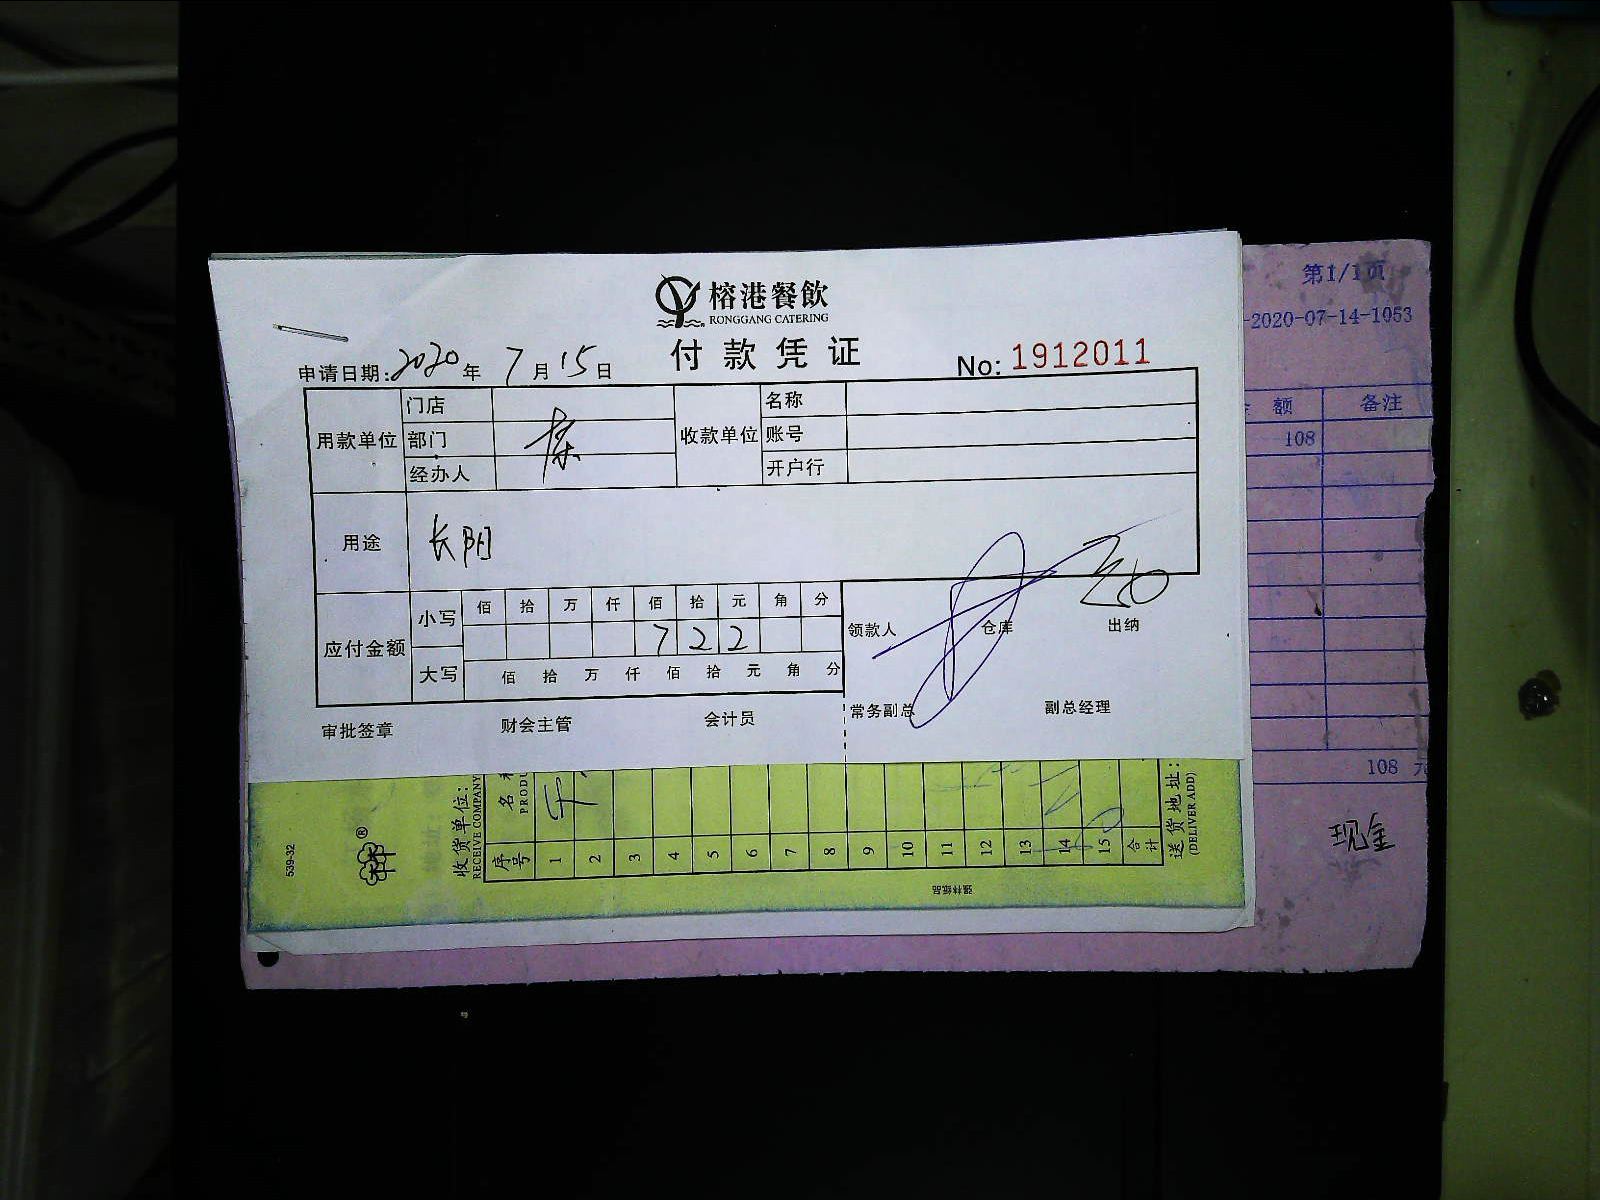 榕港餐飲
RONGGANG CATERING
付款凭证
No: 1912011
申请日期: 2020 年 7 月 15 日
用款单位 门店 收款单位 名称
部门 账号
经办人 开户行
用途 长阳
应付金额 小写 佰 拾 万 仟 佰 拾 元 角 分
7 2 2
大写 佰 拾 万 仟 佰 拾 元 角 分
领款人 仓库 出纳
审批签章 财会主管 会计员 常务副总 副总经理
第1/1页
-2020-07-14-1053
额 备注
108
108 元
现金
539-32
收货单位:
RECEIVE COMPANY
序号 1 2 3 4 5 6 7 8 9 10 11 12 13 14 15 合计
送货地址:
(DELIVER ADD)
强林纸品